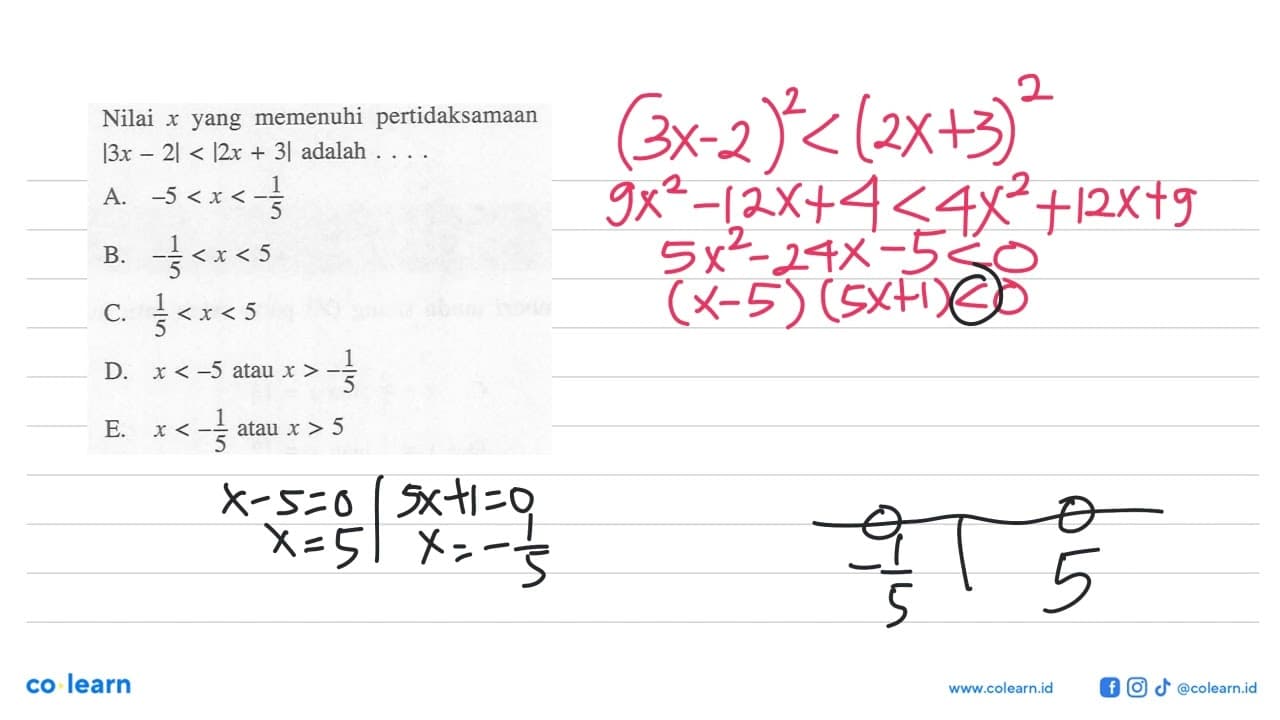 Nilai x yang memenuhi pertidaksamaan
|3x – 2| < |2x + 3| adalah . . . .
A. –5 < x < –1/5
B. –1/5 < x < 5
C. 1/5 < x < 5
D. x < –5 atau x > –1/5
E. x < –1/5 atau x > 5
(3x-2)² < (2x+3)²
9x²-12x+4 < 4x²+12x+9
5x²-24x-5<0
(x-5)(5x+1)<0
x-5=0 | 5x+1=0
x=5 | x=-1/5
-1/5 5
co learn
www.colearn.id @colearn.id